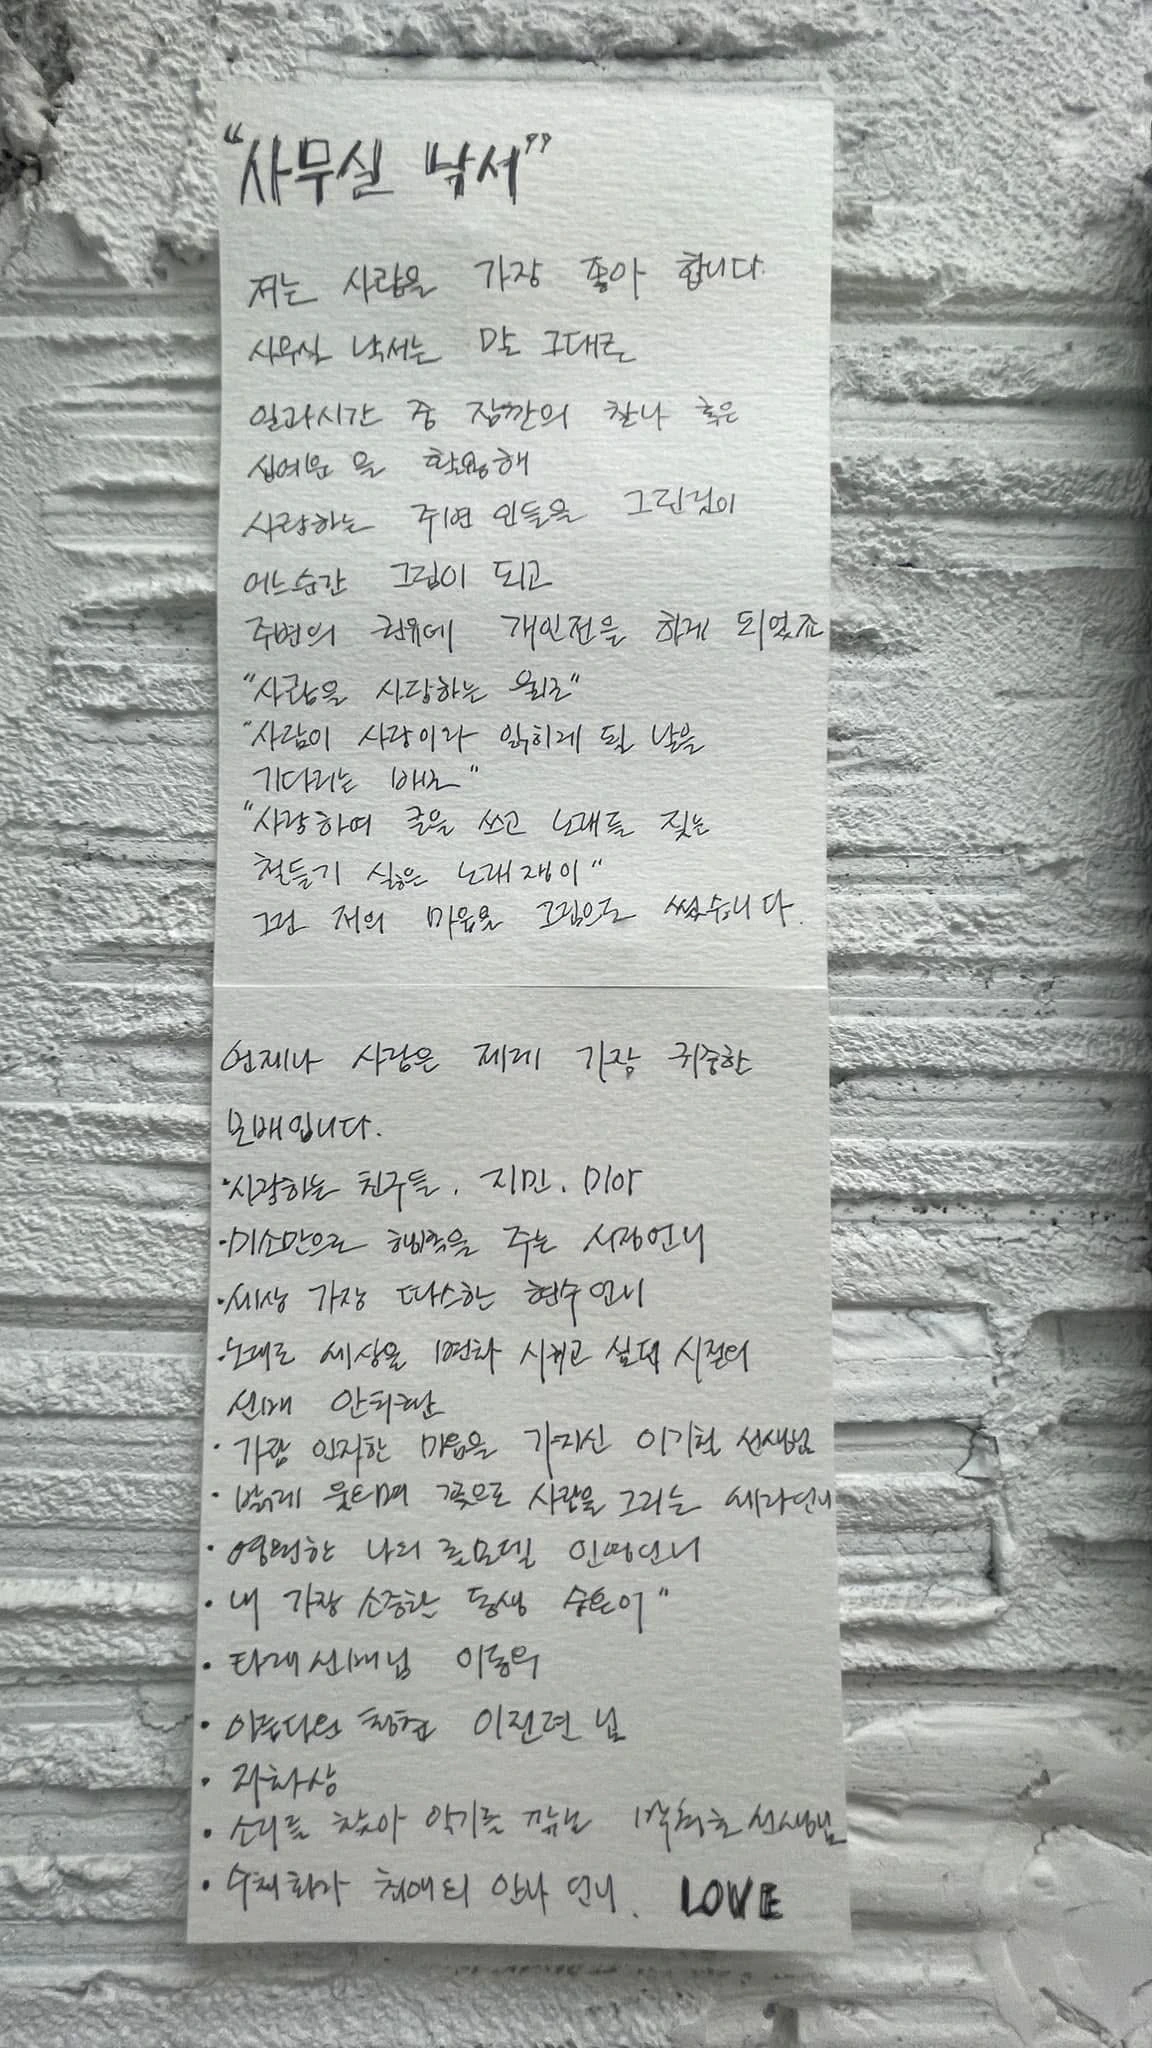 "사무실 낙서"
저는 사람을 가장 좋아 합니다.
사무실 낙서는 말 그대로
일과시간 중 잠깐의 찰나 혹은
십여분 을 활용해
사랑하는 주변 인들을 그린것이
어느순간 그림이 되고
주변의 권유에 개인전을 하게 되었죠
"사람을 사랑하는 올리"
"사람이 사랑이라 읽히게 될 날을
기다리는 배우"
"사랑하며 글을 쓰고 노래를 짓는
철들기 싫은 노래쟁이"
그런 저의 마음을 그림으로 썼습니다.
언제나 사람은 제게 가장 귀중한
보배입니다.
·사랑하는 친구들, 지민, 미아
·미소만으로 행복을 주는 서정언니
·세상 가장 따스한 현수언니
·노래로 세상을 변화 시키고 싶던 시절의
선배 안치환
· 가장 인자한 마음을 가지신 선생님
· 밝게 웃으며 꽃으로 사람을 그리는 세라언니
· 영원한 나의 롤모델 언니
· 내 가장 소중한 동생
· 타래선배님
· 아름다운 님
· 자화상
· 소리를 찾아 악기를 깎는 선생님
· 수채화가 최애의 안나 언니. LOVE